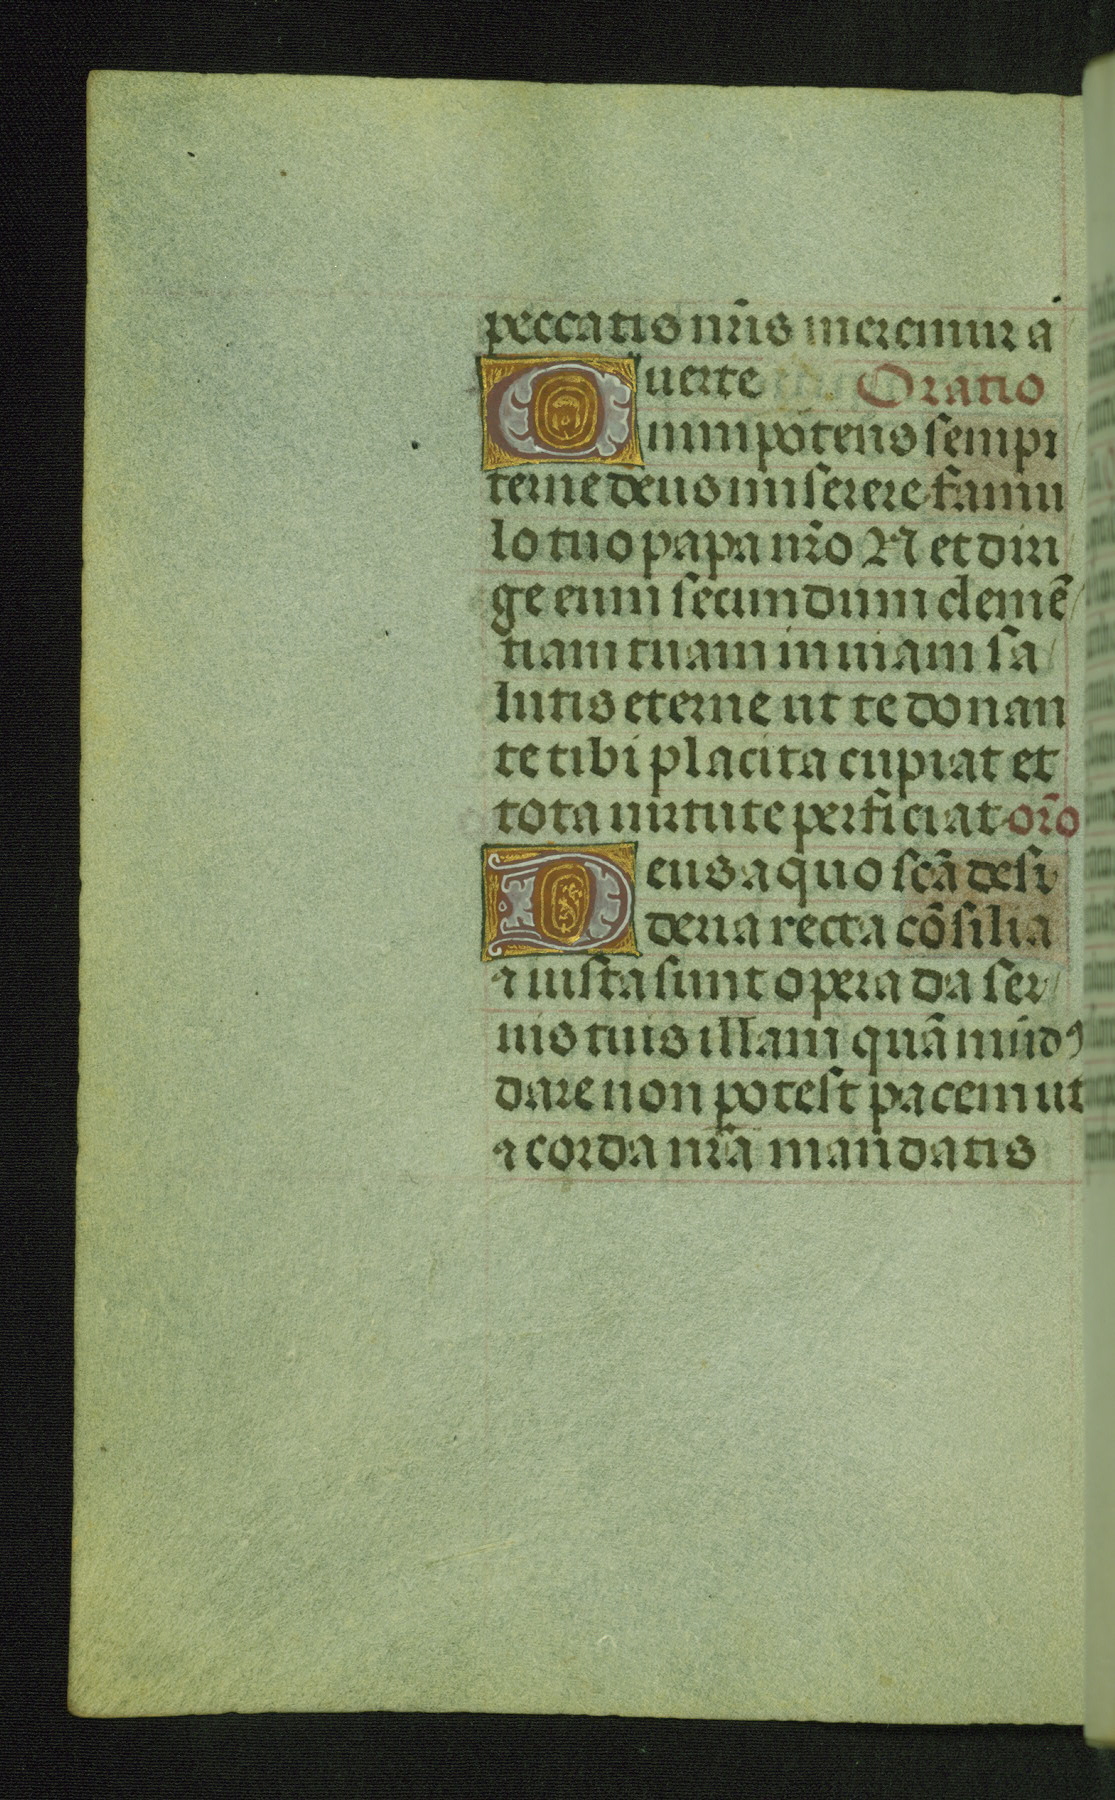 peccatis nr̄is meremur a
uerte Oratio
Omnipotens sempi
terne deus miserere famu
lo tuo papa nr̄o N et diri
ge eum secundum clemē
tiam tuam in uiam sa
lutis eterne ut te donan
te tibi placita cupiat et
tota uirtute perficiat or̄o
Deus a quo scā desi
deria recta cōsilia
⁊ iusta sunt opera da ser
uis tuis illam quā mūdꝰ
dare non potest pacem ut
⁊ corda nr̄a mandatis